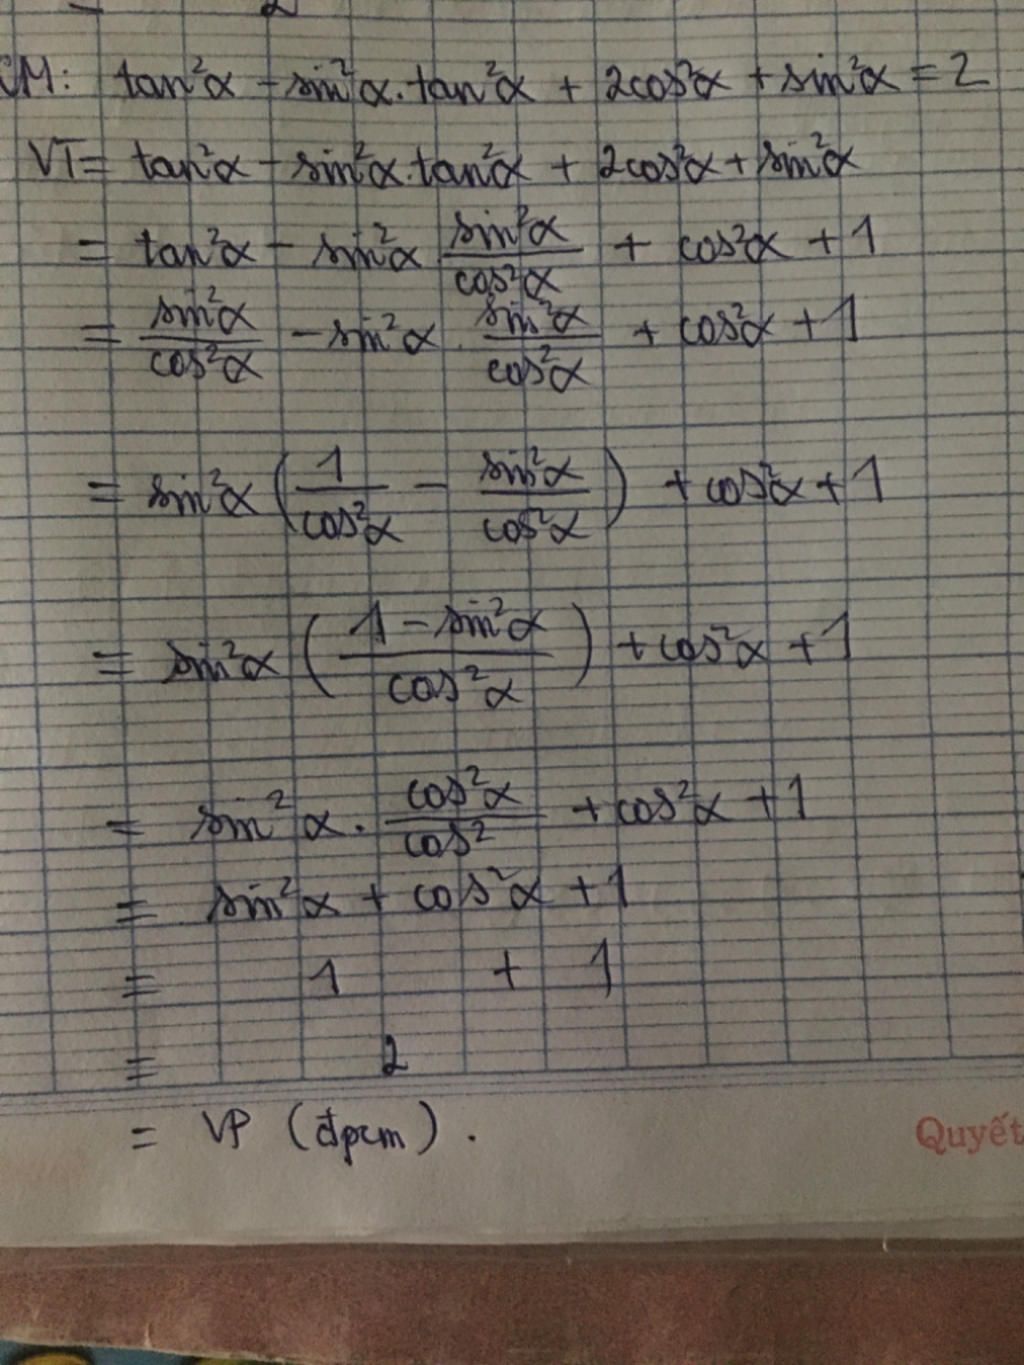 CM: tan²α - sin²α.tan²α + 2cos²α + sin²α = 2
VT = tan²α - sin²α.tan²α + 2cos²α + sin²α
= tan²α - sin²α sin²α/cos²α + cos²α + 1
= sin²α/cos²α - sin²α . sin²α/cos²α + cos²α + 1
= sin²α (1/cos²α - sin²α/cos²α) + cos²α + 1
= sin²α ((1 - sin²α)/cos²α) + cos²α + 1
= sin²α . cos²α/cos² + cos²α + 1
= sin²α + cos²α + 1
= 1 + 1
= 2
= VP (đpcm).
Quyết